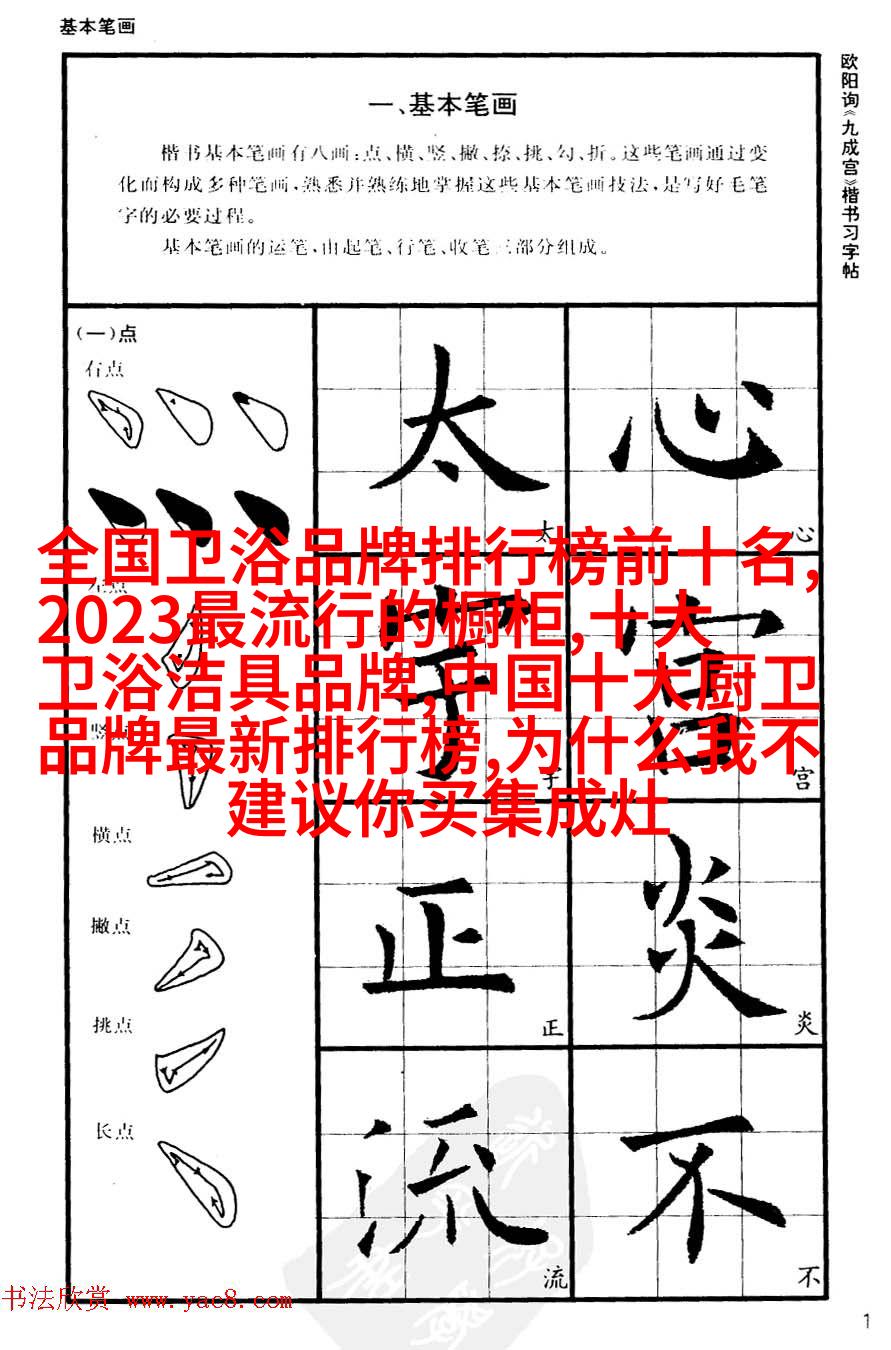 基本笔画
欧阳询《九成宫》楷书习字帖
一、基本笔画
楷书基本笔画有八画:点、横、竖、撇、捺、挑、勾、折。这些笔画通过变
化而构成多种笔画,熟悉并熟练地掌握这些基本笔画技法,是写好毛笔
字的必要过程。
基本笔画的运笔,由起笔、行笔、收笔三部分组成。
(一)点
右点
太
太
心
心
全国卫浴品牌排行榜前十名,
2023最流行的橱柜,十大
卫浴洁具品牌,中国十大厨卫
品牌最新排行榜,为什么我不
建议你买集成灶
左点
竖点
字
宫
宫
横点
撇点
挑点
长点
正
正
炎
炎
流
流
不
不
书法欣赏 www.yac8.com
1